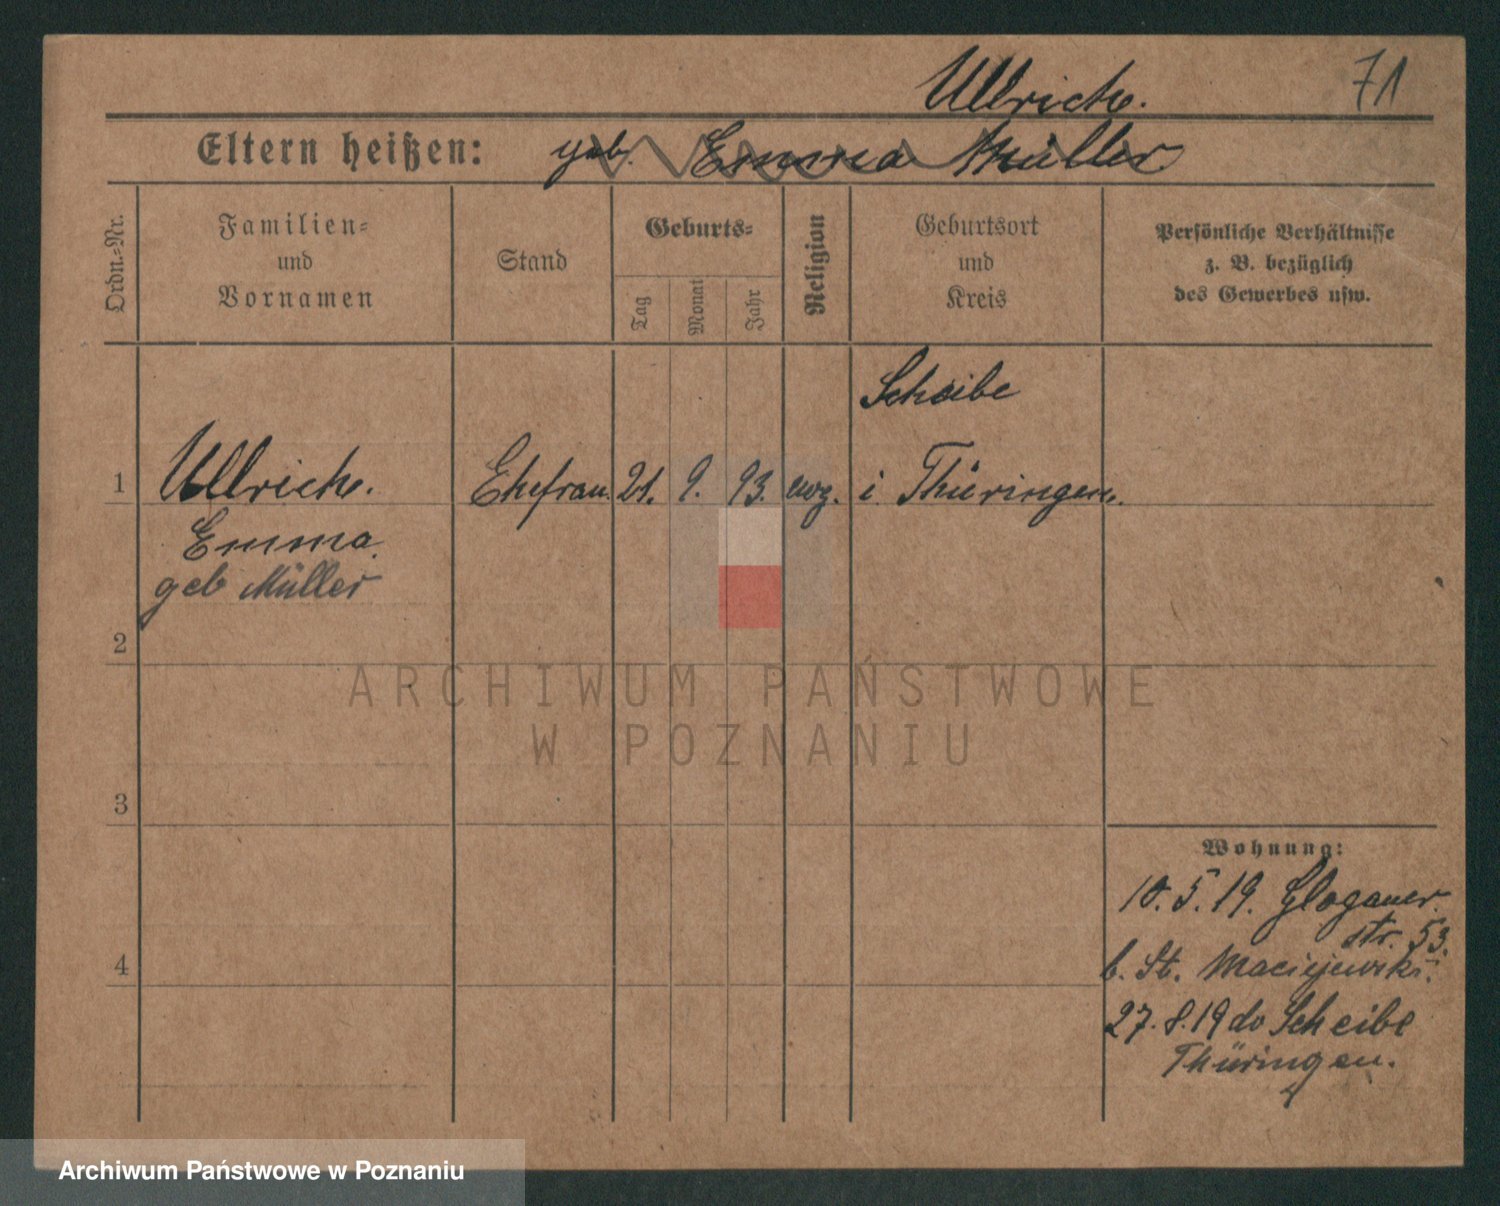 Ullrich.
71
Eltern heißen: geb. Emma Müller
Ordn.=Nr.
Familien=
und
Vornamen
Stand
Geburts=
Tag
Monat
Jahr
Religion
Geburtsort
und
Kreis
Persönliche Verhältnisse
z. B. bezüglich
des Gewerbes usw.
Scheibe
1 Ullrich. Ehefrau. 21. 9. 93. evg. i. Thüringen.
Emma
geb Müller
2
ARCHIWUM PAŃSTWOWE
W POZNANIU
3
Wohnung:
10. 5. 19. Glogauer
str. 53.
4
b. St. Maciejewski.
27. 8. 19 do Scheibe
Thüringen.
Archiwum Państwowe w Poznaniu